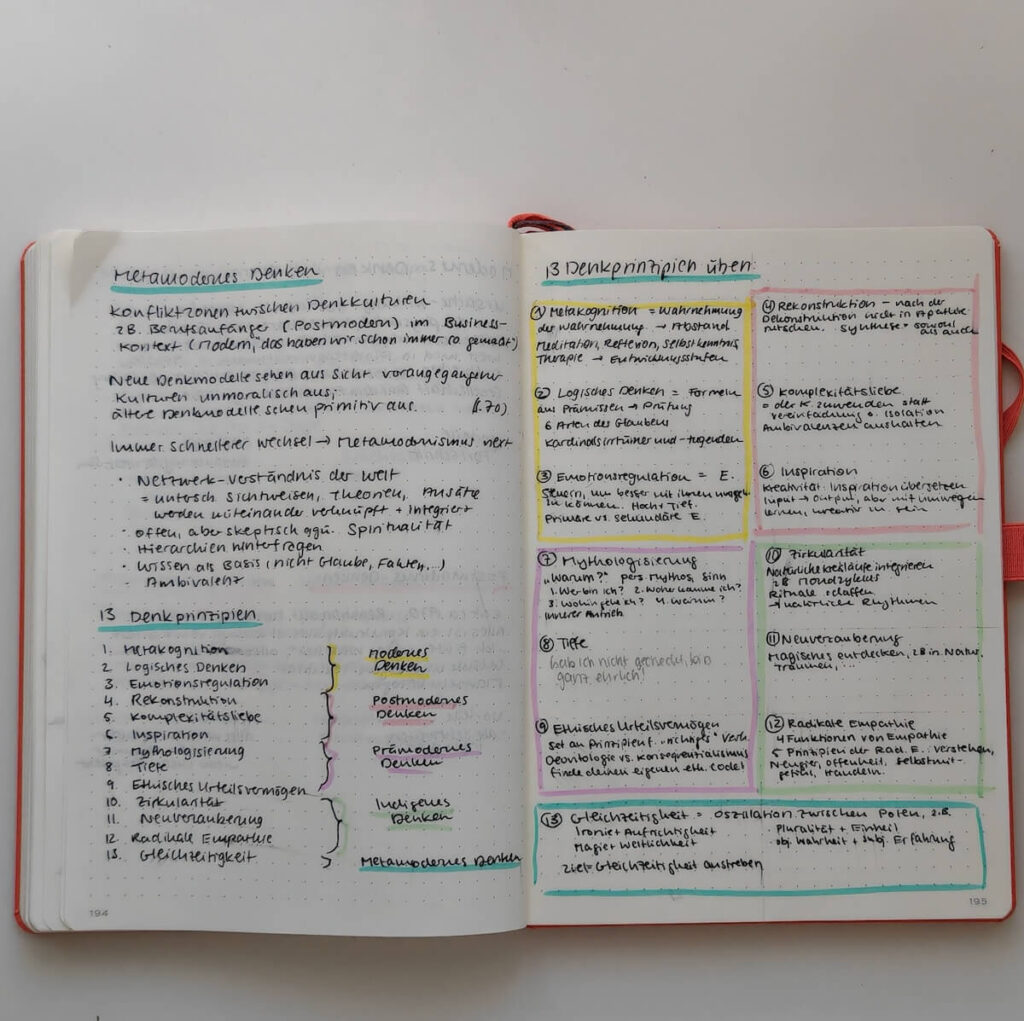 Metamodernes Denken
Konfliktzonen zwischen Denkkulturen
zB. Berufsanfänger (Postmodern) im Business-
Kontext (Modern, "das haben wir schon immer so gemacht")
Neue Denkmodelle sehen aus Sicht vorangegangener
Kulturen unmoralisch aus;
ältere Denkmodelle sehen primitiv aus. (S.70)
Immer schnellerer Wechsel → Metamodernismus
· Netzwerk-Verständnis der Welt
= untersch. Sichtweisen, Theorien, Ansätze
werden miteinander verknüpft + integriert
· offen, aber skeptisch ggü. Spiritualität
· Hierarchien hinterfragen
· Wissen als Basis (nicht Glaube, Fakten,...)
- Ambivalenz
13 Denkprinzipien
1. Metakognition
2. Logisches Denken
3. Emotionsregulation
Modernes
Denken
4. Rekonstruktion
5. Komplexitätsliebe
6. Inspiration
Postmodernes
Denken
7. Mythologisierung
8. Tiefe
9. Ethisches Urteilsvermögen
Prämodernes
Denken
10. Zirkularität
11. Neuverzauberung
12. Radikale Empathie
Indigenes
Denken
13. Gleichzeitigkeit
Metamodernes Denken
194
13 Denkprinzipien üben:
① Metakognition = Wahrnehmung
der Wahrnehmung → Abstand
Meditation, Reflexion, Selbstkenntnis
Therapie → Entwicklungsstufen
② Logisches Denken = Formeln
aus Prämissen → Prüfung
6 Arten des Glaubens
Kardinalsirrtümer und -tugenden
③ Emotionsregulation = E.
steuern, um besser mit ihnen umgehen
zu können. Hoch + Tief.
Primäre vs. sekundäre E.
④ Rekonstruktion – nach der
Dekonstruktion nicht in Apathie
rutschen. Synthese = sowohl
als auch
⑤ Komplexitätsliebe
= der K. zuwenden statt
Vereinfachung o. Isolation
Ambivalenzen aushalten
⑥ Inspiration
Kreativität. Inspiration übersetzen
Input → Output, aber mit Umwegen
lernen, kreativ zu sein
⑦ Mythologisierung
"Warum?" pers. Mythos, Sinn
1. Wer bin ich? 2. Woher komme ich?
3. Wohin gehe ich? 4. Warum?
innerer Antrieb
⑧ Tiefe
hab ich nicht gecheckt, bin
ganz ehrlich!
⑨ Ethisches Urteilsvermögen
Set an Prinzipien f. "richtiges" Verh.
Deontologie vs. Konsequentialismus
finde deinen eigenen eth. Code!
⑩ Zirkularität
Natürliche Kreisläufe integrieren
zB Mondzyklus
Rituale schaffen
→ natürliche Rhythmen
⑪ Neuverzauberung
Magisches entdecken, zB in Natur,
Träumen, ...
⑫ Radikale Empathie
4 Funktionen von Empathie
5 Prinzipien der Rad. E.: Verstehen,
Neugier, Offenheit, Selbstmit-
gefühl, Handeln.
⑬ Gleichzeitigkeit = Oszillation zwischen Polen, z.B.
Ironie + Aufrichtigkeit
Magie + Weltlichkeit
· Pluralität + Einheit
· obj. Wahrheit + subj. Erfahrung
Ziel: Gleichzeitigkeit anstreben
195